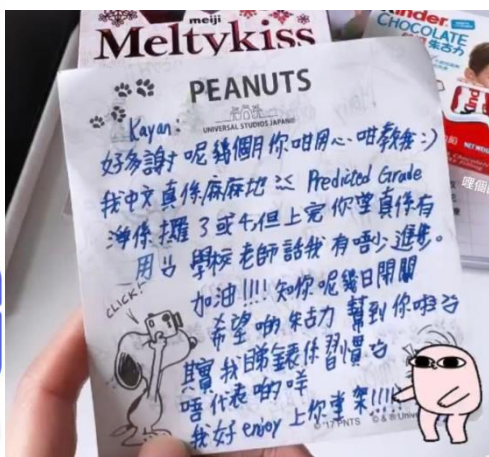 meiji
Meltykiss
kinder
CHOCOLATE
朱古力
NET WEIGHT
PEANUTS
UNIVERSAL STUDIOS JAPAN
Kayan:
好多謝呢幾個月你咁用心咁教我:)
我中文真係麻麻地 Predicted Grade
淨係攞3或4,但上完你堂真係有
用 學校老師話我有唔少進步。
加油!!!! 知你呢幾日閉關
希望啲朱古力幫到你啦
CLICK!
其實我睇錶係習慣
唔代表啲咩
我好enjoy上你堂架!!!!
©'17 PNTS